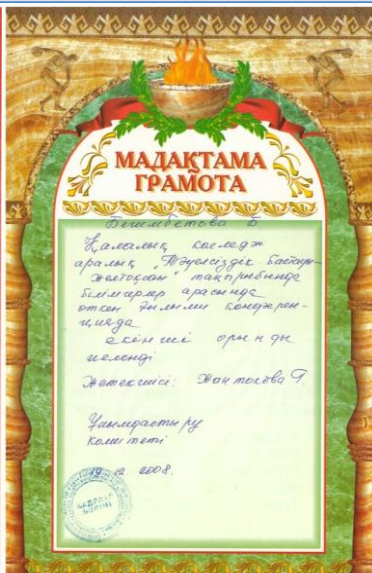 МАДАҚТАМА
ГРАМОТА
Бегимбетова Б
Қалалық колледж
аралық "Тәуелсіздік бастауы
Желтоқсан" тақырыбында
білімгерлер арасында
өткен ғылыми конферен-
цияда
екінші орынды
иеленді
Жетекшісі: Г.
Ұйымдастыру
комитеті
12. 2008.
КАДРЛАР
БӨЛІМІ